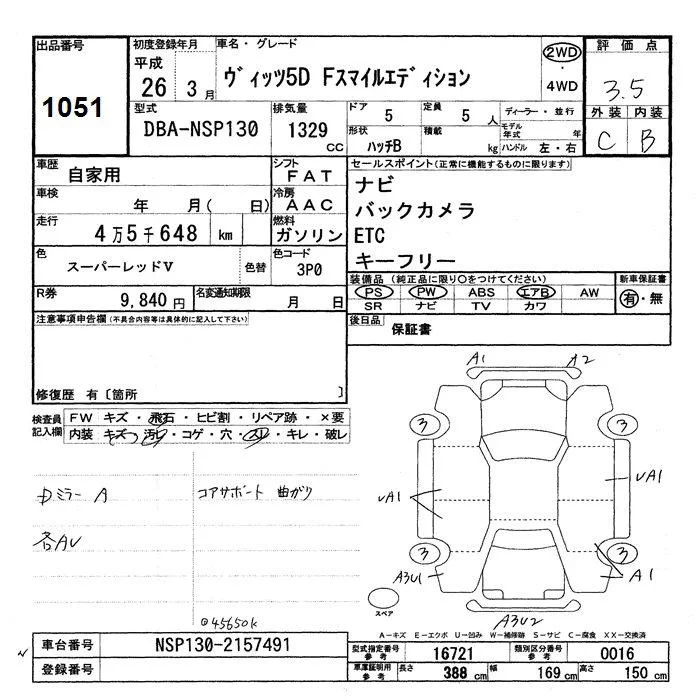 出品番号
1051
初度登録年月
平成
26年 3月
車名・グレード
ヴィッツ5D Fスマイルエディション
2WD
・
4WD
評価点
3.5
外装 内装
C B
型式
DBA-NSP130
排気量
1329
CC
ドア
5
定員
5 人
ディーラー・並行
モデル年式 年
形状
ハッチB
積載
kg
ハンドル 左・右
車歴
自家用
シフト
FAT
車検
年 月( 日)
冷房
AAC
走行
4万5千648 km
燃料
ガソリン
色
スーパーレッドV
色替
色コード
3P0
R券
9,840円
名変通知期限
月 日
セールスポイント(正常に機能するものに限ります)
ナビ
バックカメラ
ETC
キーフリー
装備品(純正品に限り○をつけてください)
PS PW ABS エアB AW
SR ナビ TV カワ
新車保証書
有・無
後日品
保証書
注意事項申告欄(不具合内容等は具体的に記入して下さい)
修復歴 有〔箇所 〕
検査員
記入欄
FW キズ・飛石・ヒビ割・リペア跡・×要
内装 キズ・汚レ・コゲ・穴・スレ・キレ・破レ
中ミラー A
コアサポート 曲がり
各AU
@45650k
A1
A2
3
3
UA1
UA1
3
3
A3U1
A1
A3U2
スペア
A-キズ E-エクボ U-凹み W-補修跡 S-サビ C-腐食 XX-交換済
車台番号
NSP130-2157491
登録番号
型式指定番号
参考
16721
類別区分番号
参考
0016
車庫証明用
参考
長さ
388 cm
幅
169 cm
高さ
150 cm